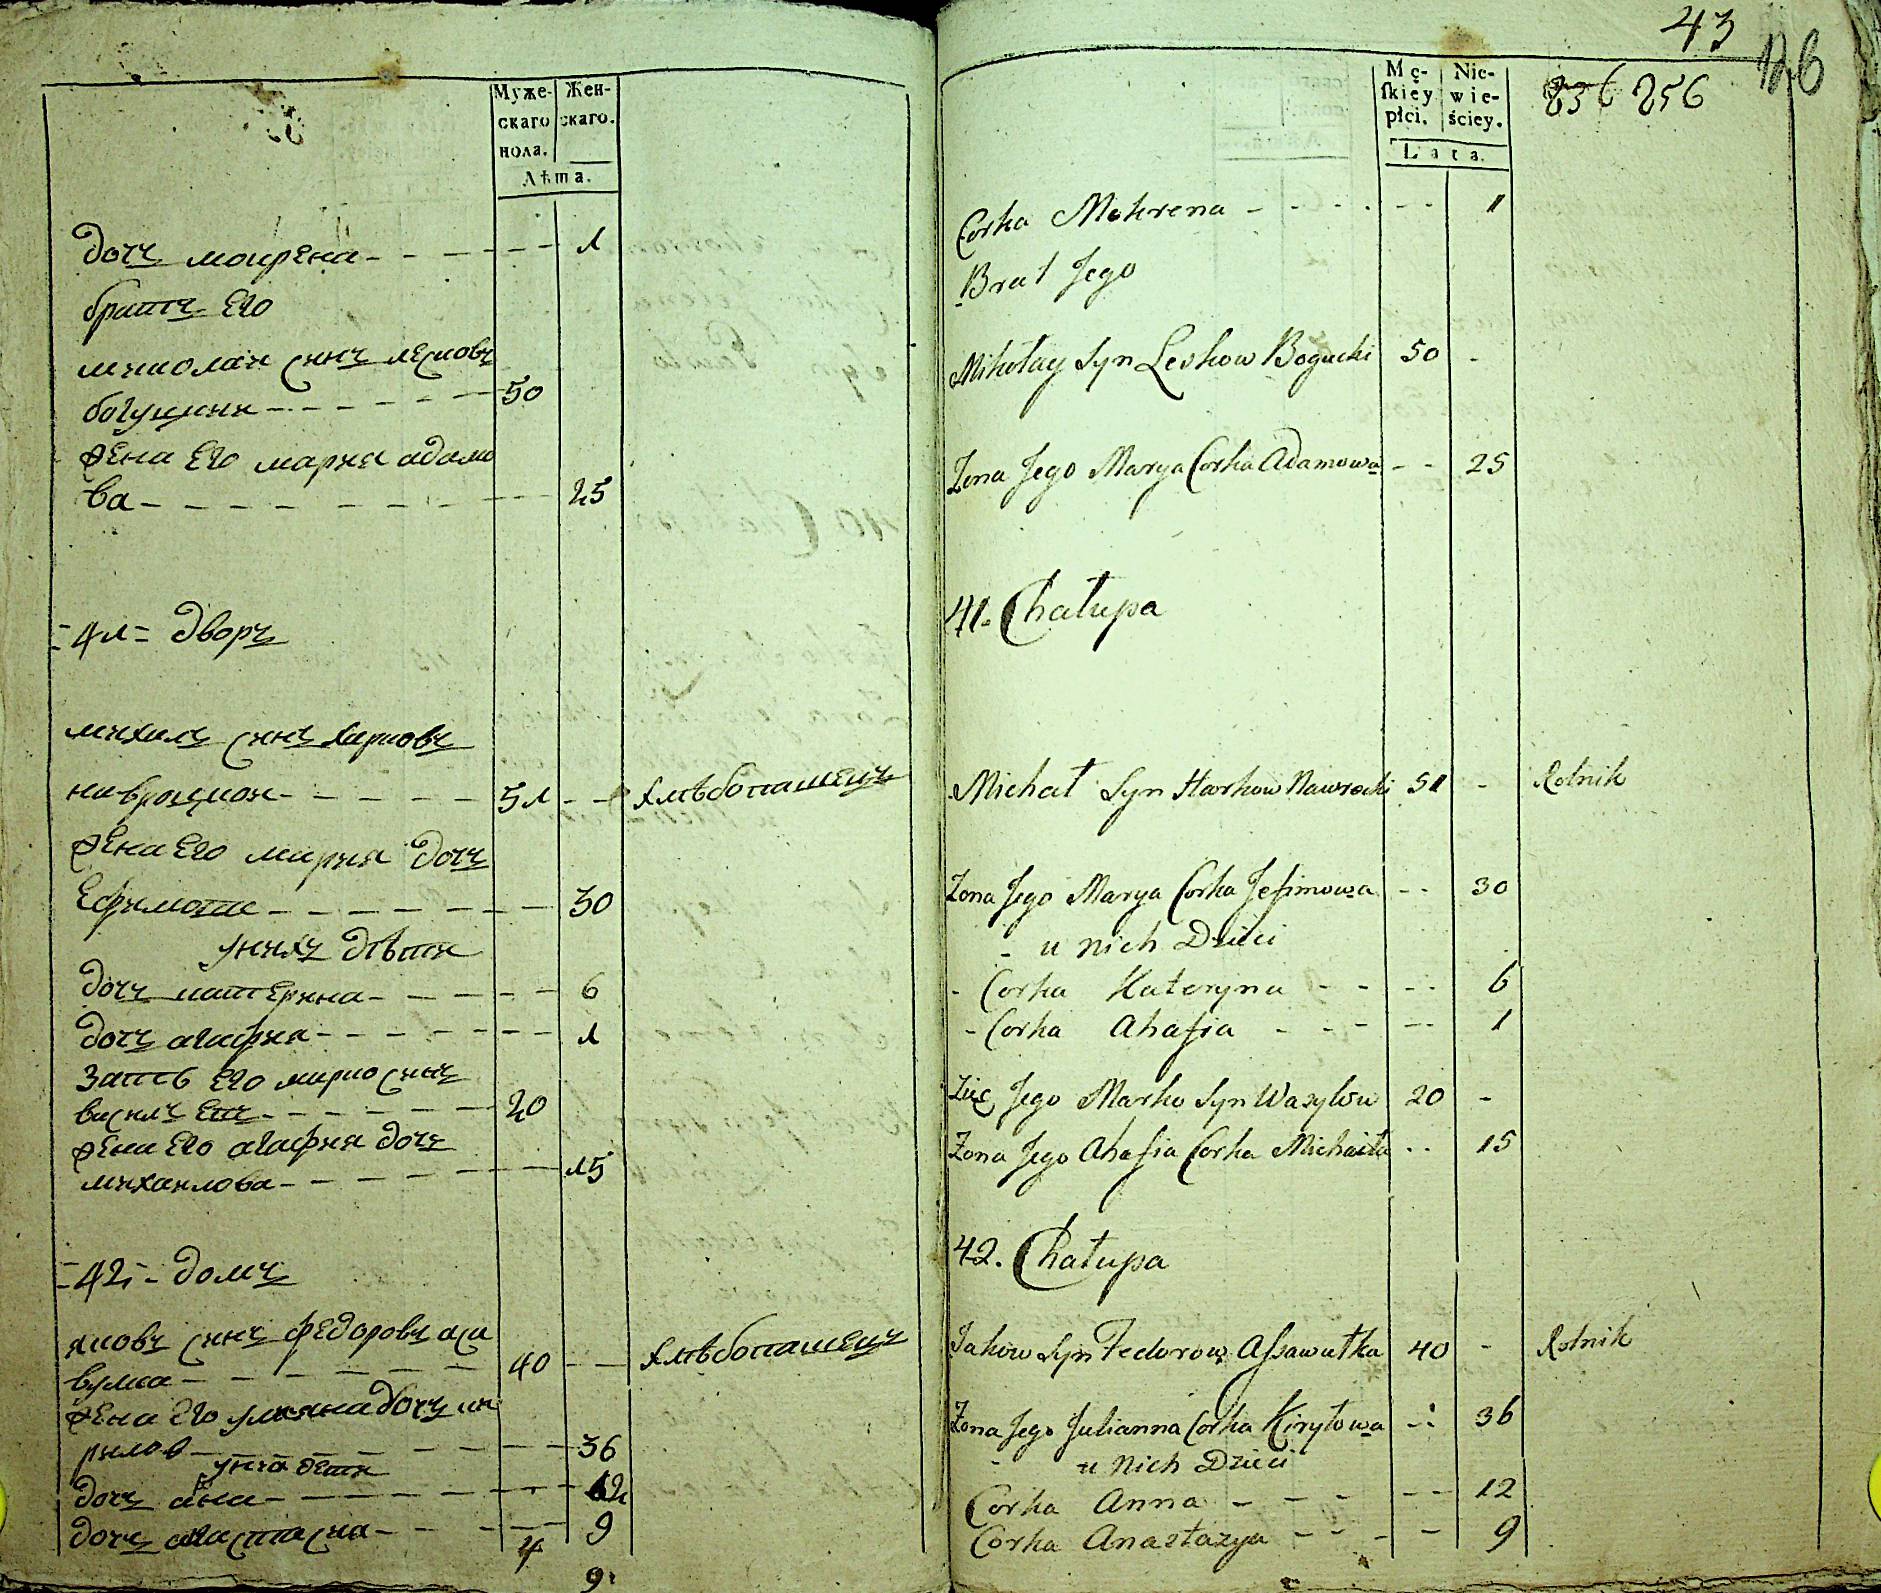 Муже- Жен-
скаго скаго.
пола.
Лѣта.
дочъ мокрена - - - - - - 1
братъ Его
миколаи синъ лесковъ
богуцкии - - - - - - 50
жена Его мария адамо
ва - - - - - - - 25
= 41 = дворъ
михаилъ синъ харковъ
навроцкои - - - - - 51 - - хлѣбопашецъ
жена Его мария дочъ
Ефимова - - - - - - - 30
унихъ дѣти
дочъ катерина - - - - - 6
дочъ агафия - - - - - - 1
зать Его марко синъ
василъ - - - - - - 20
жена Его агафия дочъ
михаилова - - - - - - 15
= 42 = домъ
яковъ синъ федоровъ аса
вулка - - - - - - 40 - - хлѣбопашецъ
жена Его улияна дочъ ки
рилов - - - - - - - - 36
унихъ дети
дочъ анна - - - - - - - - 12
дочъ анастасиа - - - - - - 9
4
9
43
126
236 256
Mę- Nie-
skiey wie-
płci. ściey.
Lata.
Corka Mokrena - - - - - - 1
Brat Jego
Mikołay Syn Leskow Bogucki 50 -
Zona Jego Marya Corka Adamowa - - 25
41. Chałupa
Michał Syn Harkow Nawrocki 51 - Rolnik
Zona Jego Marya Corka Jefimowa - - 30
- u nich Dzieci
- Corka Kateryna - - - - 6
- Corka Ahafia - - - - - 1
Zięć Jego Marko Syn Wasylow 20 -
Zona Jego Ahafia Corka Michaiła - - 15
42. Chałupa
Jakow Syn Fedorow Assawułka 40 - Rolnik
Zona Jego Julianna Corka Kiryłowa - - 36
- u nich Dzieci
Corka Anna - - - - - - 12
Corka Anastazya - - - - 9